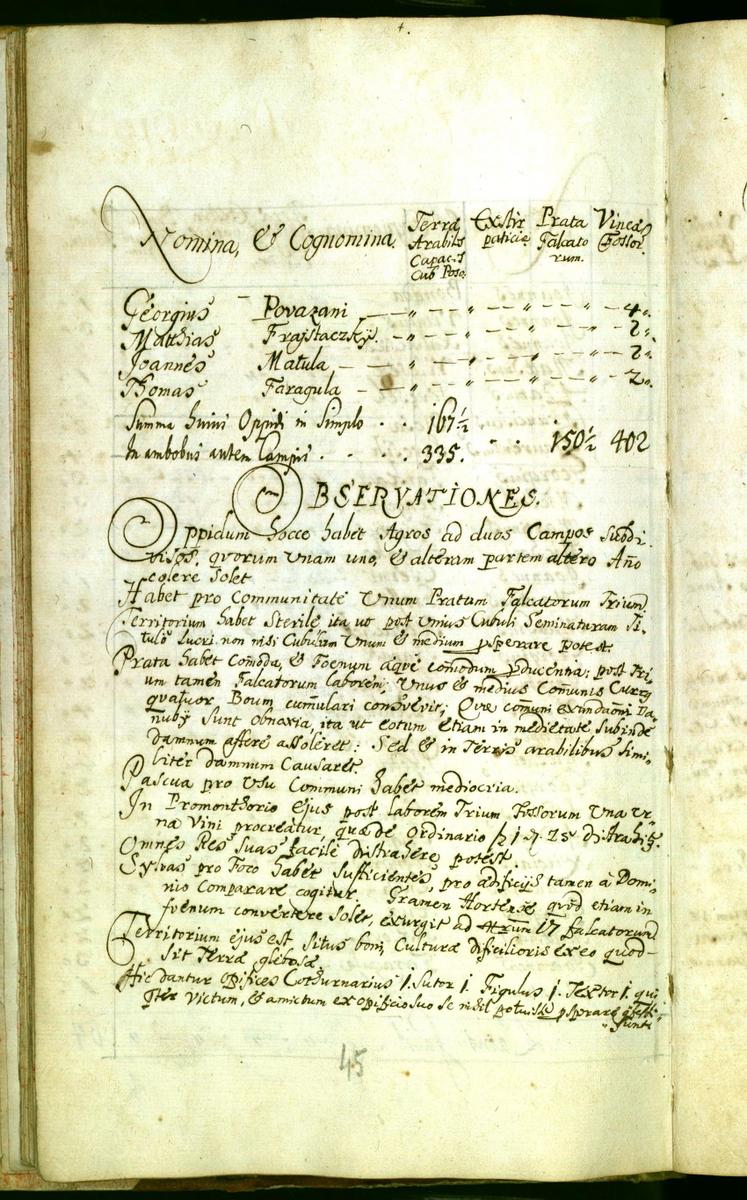 Nomina, & Cognomina. Terræ Arabiles Capac. Cub. Poso: Exstirpaticiæ Prata Falcatorum. Vineæ Fossor.
Georgius Povazani — „ — „ — „ — 4„
Matthias Frajstaczkÿ. — „ — „ — „ — 2„
Joannes Matula — „ — „ — „ — 2„
Thomas Faragula — „ — „ — „ — 2„
Summa huius Oppidi in Simplo . . 167½
In ambobus autem Campis . . . . 335. . . 150½ 402
OBSERVATIONES.
Oppidum hocce habet Agros ad duos Campos Subdi-
visos, quorum Unam uno, & alteram partem altero Año
colere Solet
Habet pro Communitate Unum Pratum Falcatorum Trium
Territorium habet Sterile ita ut post Unius Cubuli Seminaturam Ti-
tulo Lucri non nisi Cubulum Unum & medium psperare potest.
Prata habet Comoda, & Foenum aque comodum pducentia; post Tri-
um tamen Falcatorum laborem, Unus & medius Comunis Currq
quatuor Boum cumulari consvevit; Quæ comuni exundaoni Da-
nubÿ Sunt obnoxia, ita ut eotum etiam in medietate Subinde
damnum affere assoleret: Sed & in Terris arabilibus Simi-
liter damnum Causaret.
Pascua pro Usu Communi habet mediocria.
In Promonthorio ejus post laborem Trium Fossorum Una Ur-
na Vini procreatur, quæ de ordinario f 1 x. 25 distrahitr.
Omnes Res Suas facile distrahere potest
Sylvas pro Foco habet Sufficientes, pro ædificijs tamen à Domi-
nio Comparare cogitur. Gramen Hortense quod etiam in
foenum convertere Solet, exurgit ad 17 falcatorum
Territorium ejus est Situs boni, Culturæ dificilioris ex eo quod-
Sit Terræ glebosæ
Hic dantur Opifices Cothurnarius 1. Sutor 1. Figulus 1. Textor 1. qui
pter Victum, & amictum ex opificio suo se nihil potuisse psperare
45